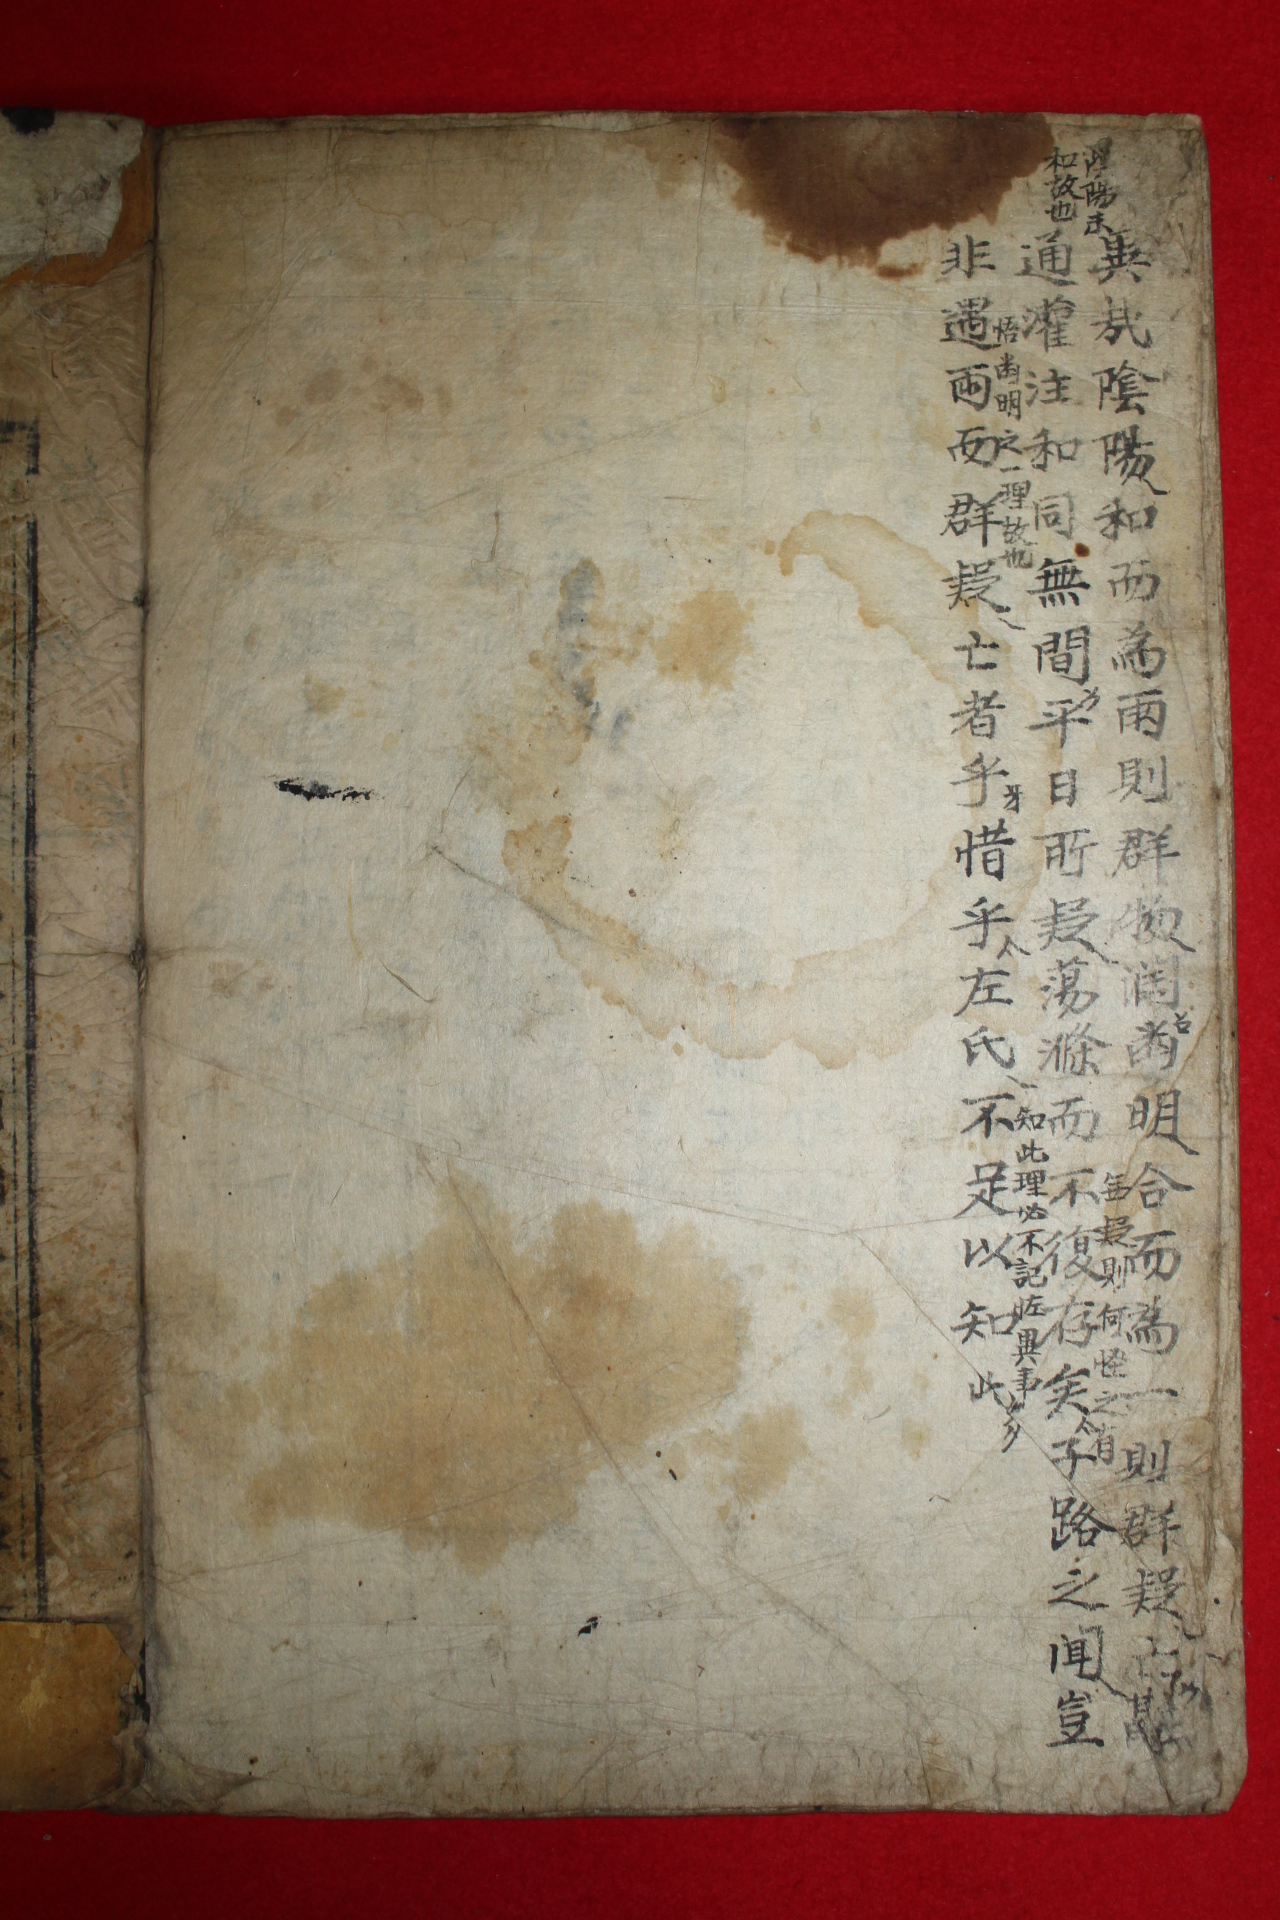 異哉陰陽和而為雨則群物潤幽明合而為一則群疑亡
陰陽未
和故也
通灌注和同無間平日所疑蕩滌而不復存矣子路之聞豈
無疑則何怪之有
非遇雨而群疑亡者乎惜乎左氏不足以知此
悟幽明之一理故也
知此理必不記此異事